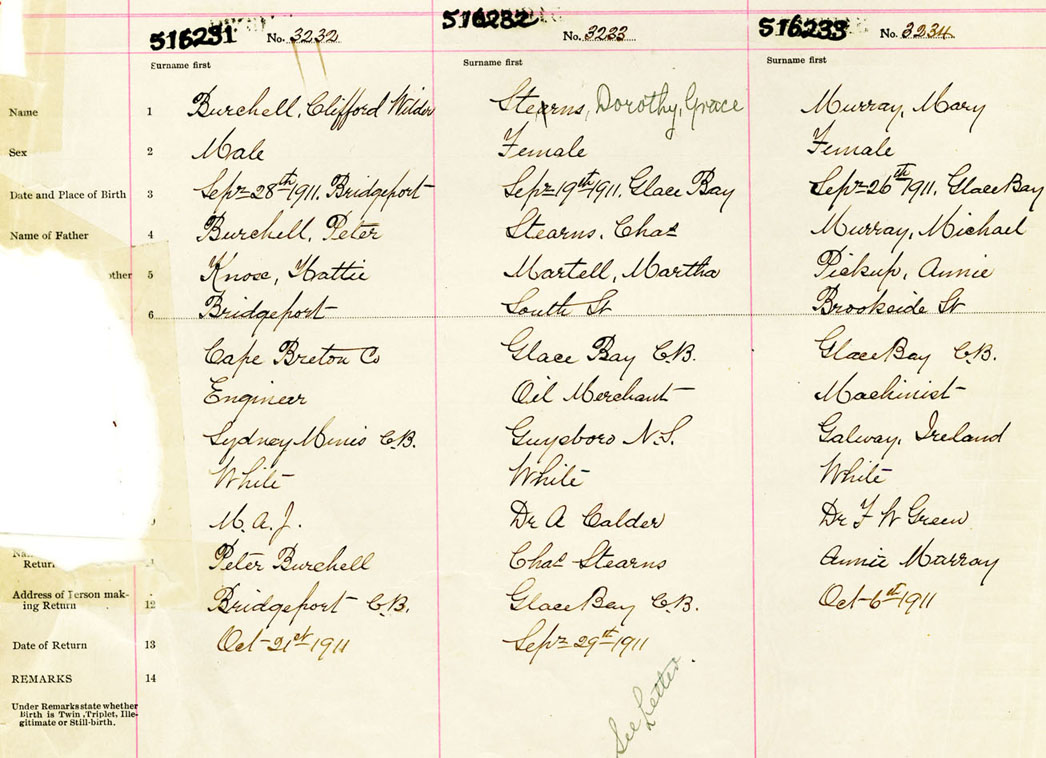 516231 No. 3232 516232 No. 3233 516233 No. 3234
Surname first Surname first Surname first
Name 1 Burchell, Clifford Wilder Stearns, Dorothy, Grace Murray, Mary
Sex 2 Male Female Female
Date and Place of Birth 3 Sept 28th 1911, Bridgeport Sept 19th 1911, Glace Bay Sept 26th 1911, Glace Bay
Name of Father 4 Burchell, Peter Stearns, Chas Murray, Michael
other 5 Knose, Hattie Martell, Martha Pickup, Annie
6 Bridgeport South St Brookside St
Cape Breton Co Glace Bay C.B. Glace Bay C.B.
Engineer Oil Merchant Machinist
Sydney Mines C.B. Guysboro N.S. Galway, Ireland
White White White
M. A. J. Dr A Calder Dr F W Green
Return Peter Burchell Chas Stearns Annie Murray
Address of Person mak-
ing Return 12 Bridgeport C.B. Glace Bay C.B. Oct 6th 1911
Date of Return 13 Oct 21st 1911 Sept 29th 1911
REMARKS 14
Under Remarks state whether
Birth is Twin, Triplet, Ille-
gitimate or Still-birth.
See Letter.